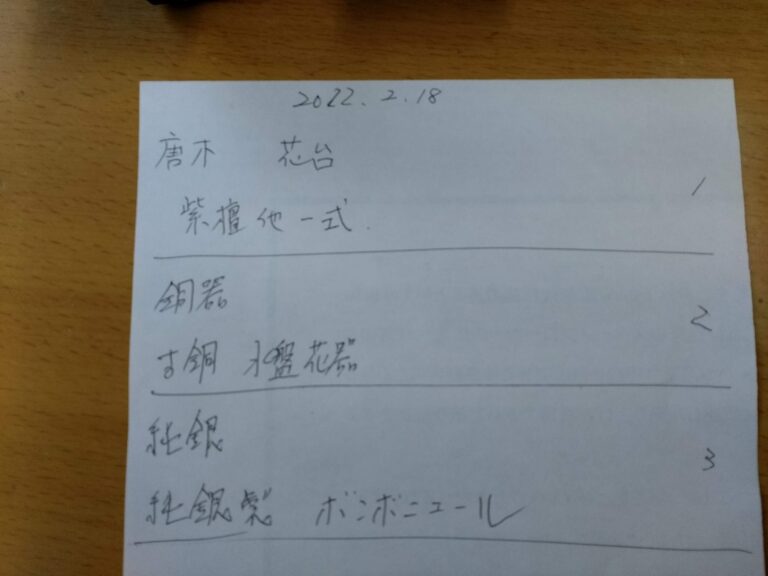 2022.2.18
唐木 花台
1
紫檀他一式.
銅器
2
古銅 水盤花器
純銀
3
純銀 ボンボニエール